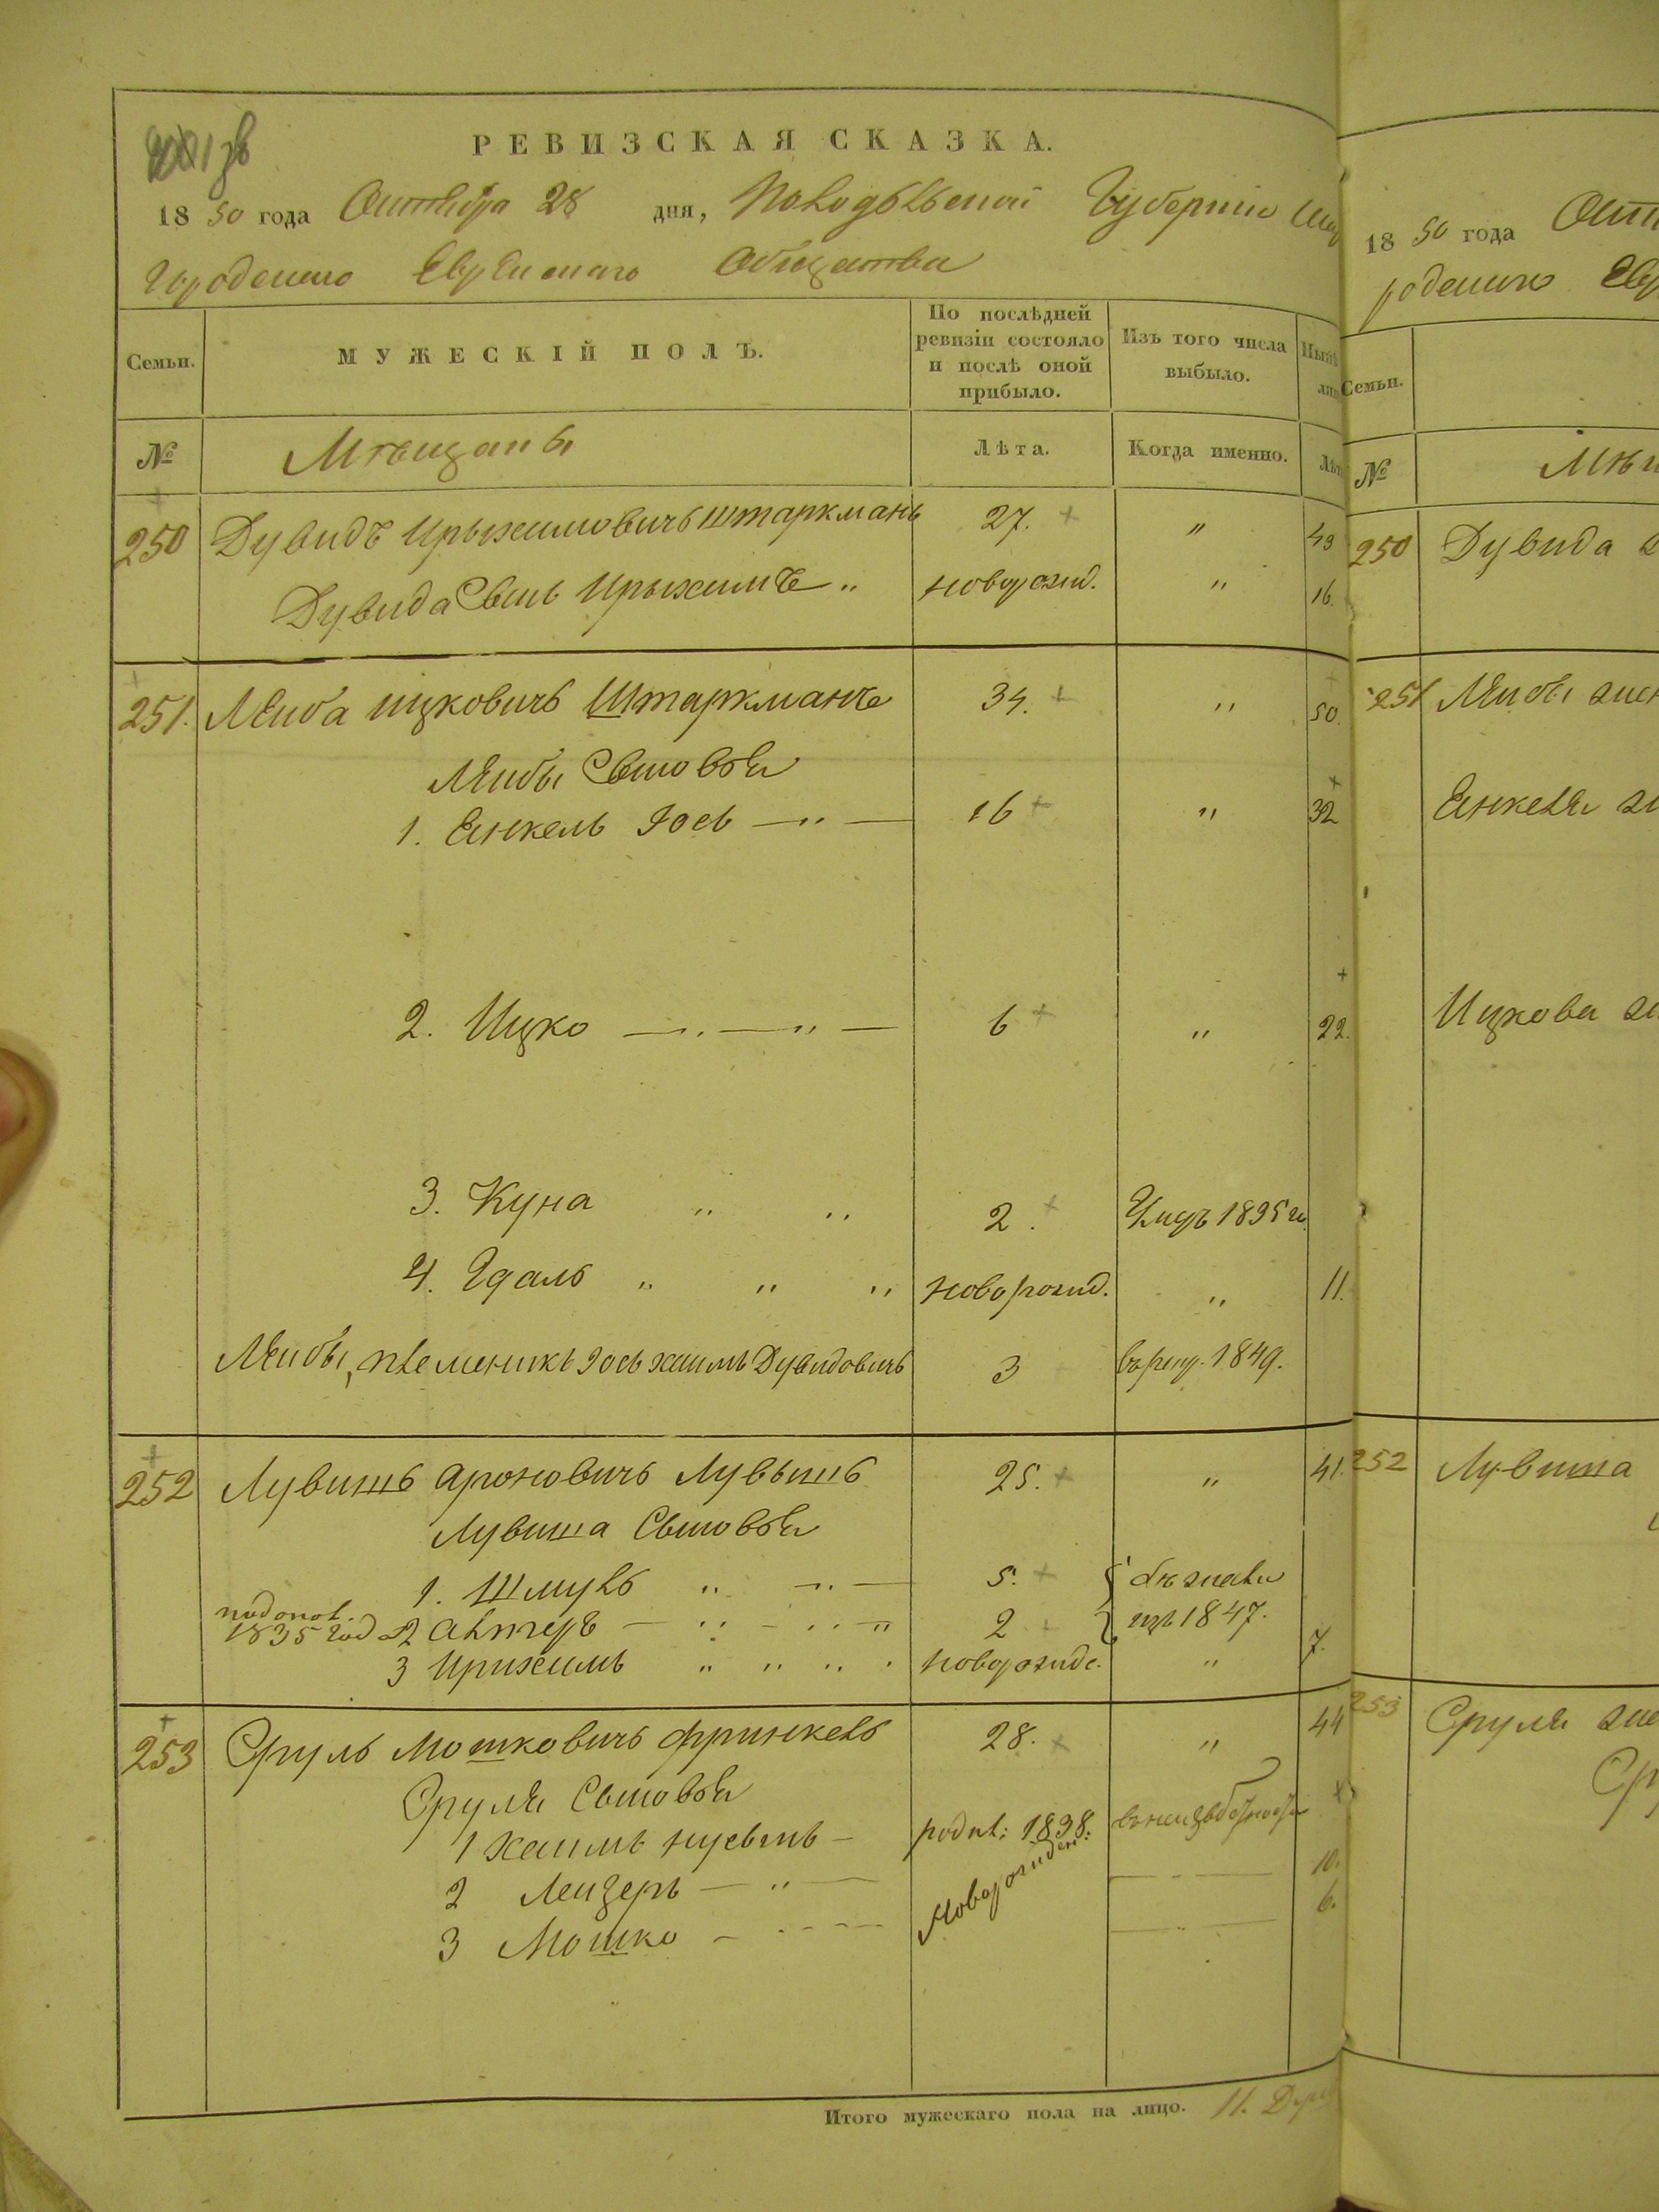 РЕВИЗСКАЯ СКАЗКА.
18 50 года Октября 28 дня, Подольской Губернии
Городского Еврейского Общества
Семьи.
МУЖЕСКІЙ ПОЛЪ.
По послѣдней ревизіи состояло и послѣ оной прибыло.
Изъ того числа выбыло.
№
Мѣщане
Лѣта.
Когда именно.
250 Дувидъ Ирыхимовичъ Штаркманъ 27. " 43
Дувида Сынъ Ирыхимъ " новорожд. " 16.
251. Лейба Ицковичъ Штаркманъ 34. " 50.
Лейбы Сыновья
1. Янкель Іось — " — 16 " 32
2. Ицко — " — " — 6 " 22.
3. Куна " " 2. 1835 го.
4. Гдаль " " " новорожд. " 11.
Лейбы, племеникъ Іось Хаимъ Дувидовичъ 3 въ рекр. 1849.
252 Лувишъ Ароновичъ Лувышъ 25. " 41.
Лувиша Сыновья
1. Шмуль " " — 5.
1835 год 2 Алтеръ — " — " " 2 1847.
3 Ирихимъ " " " " новорожде. " 7.
253 Сруль Мошковичъ Фринкель 28. " 44
Сруля Сыновья
1 Хаимъ Нусынъ — родил: 1838.
2 Лейзеръ — " — Новорожден: 10.
3 Мошко — 6.
Итого мужескаго пола на лицо. 11.
18 50 года
Семьи.
№
250 Дувида
251 Лейбы
Янкеля
Ицкова
252 Лувиша
253 Сруля